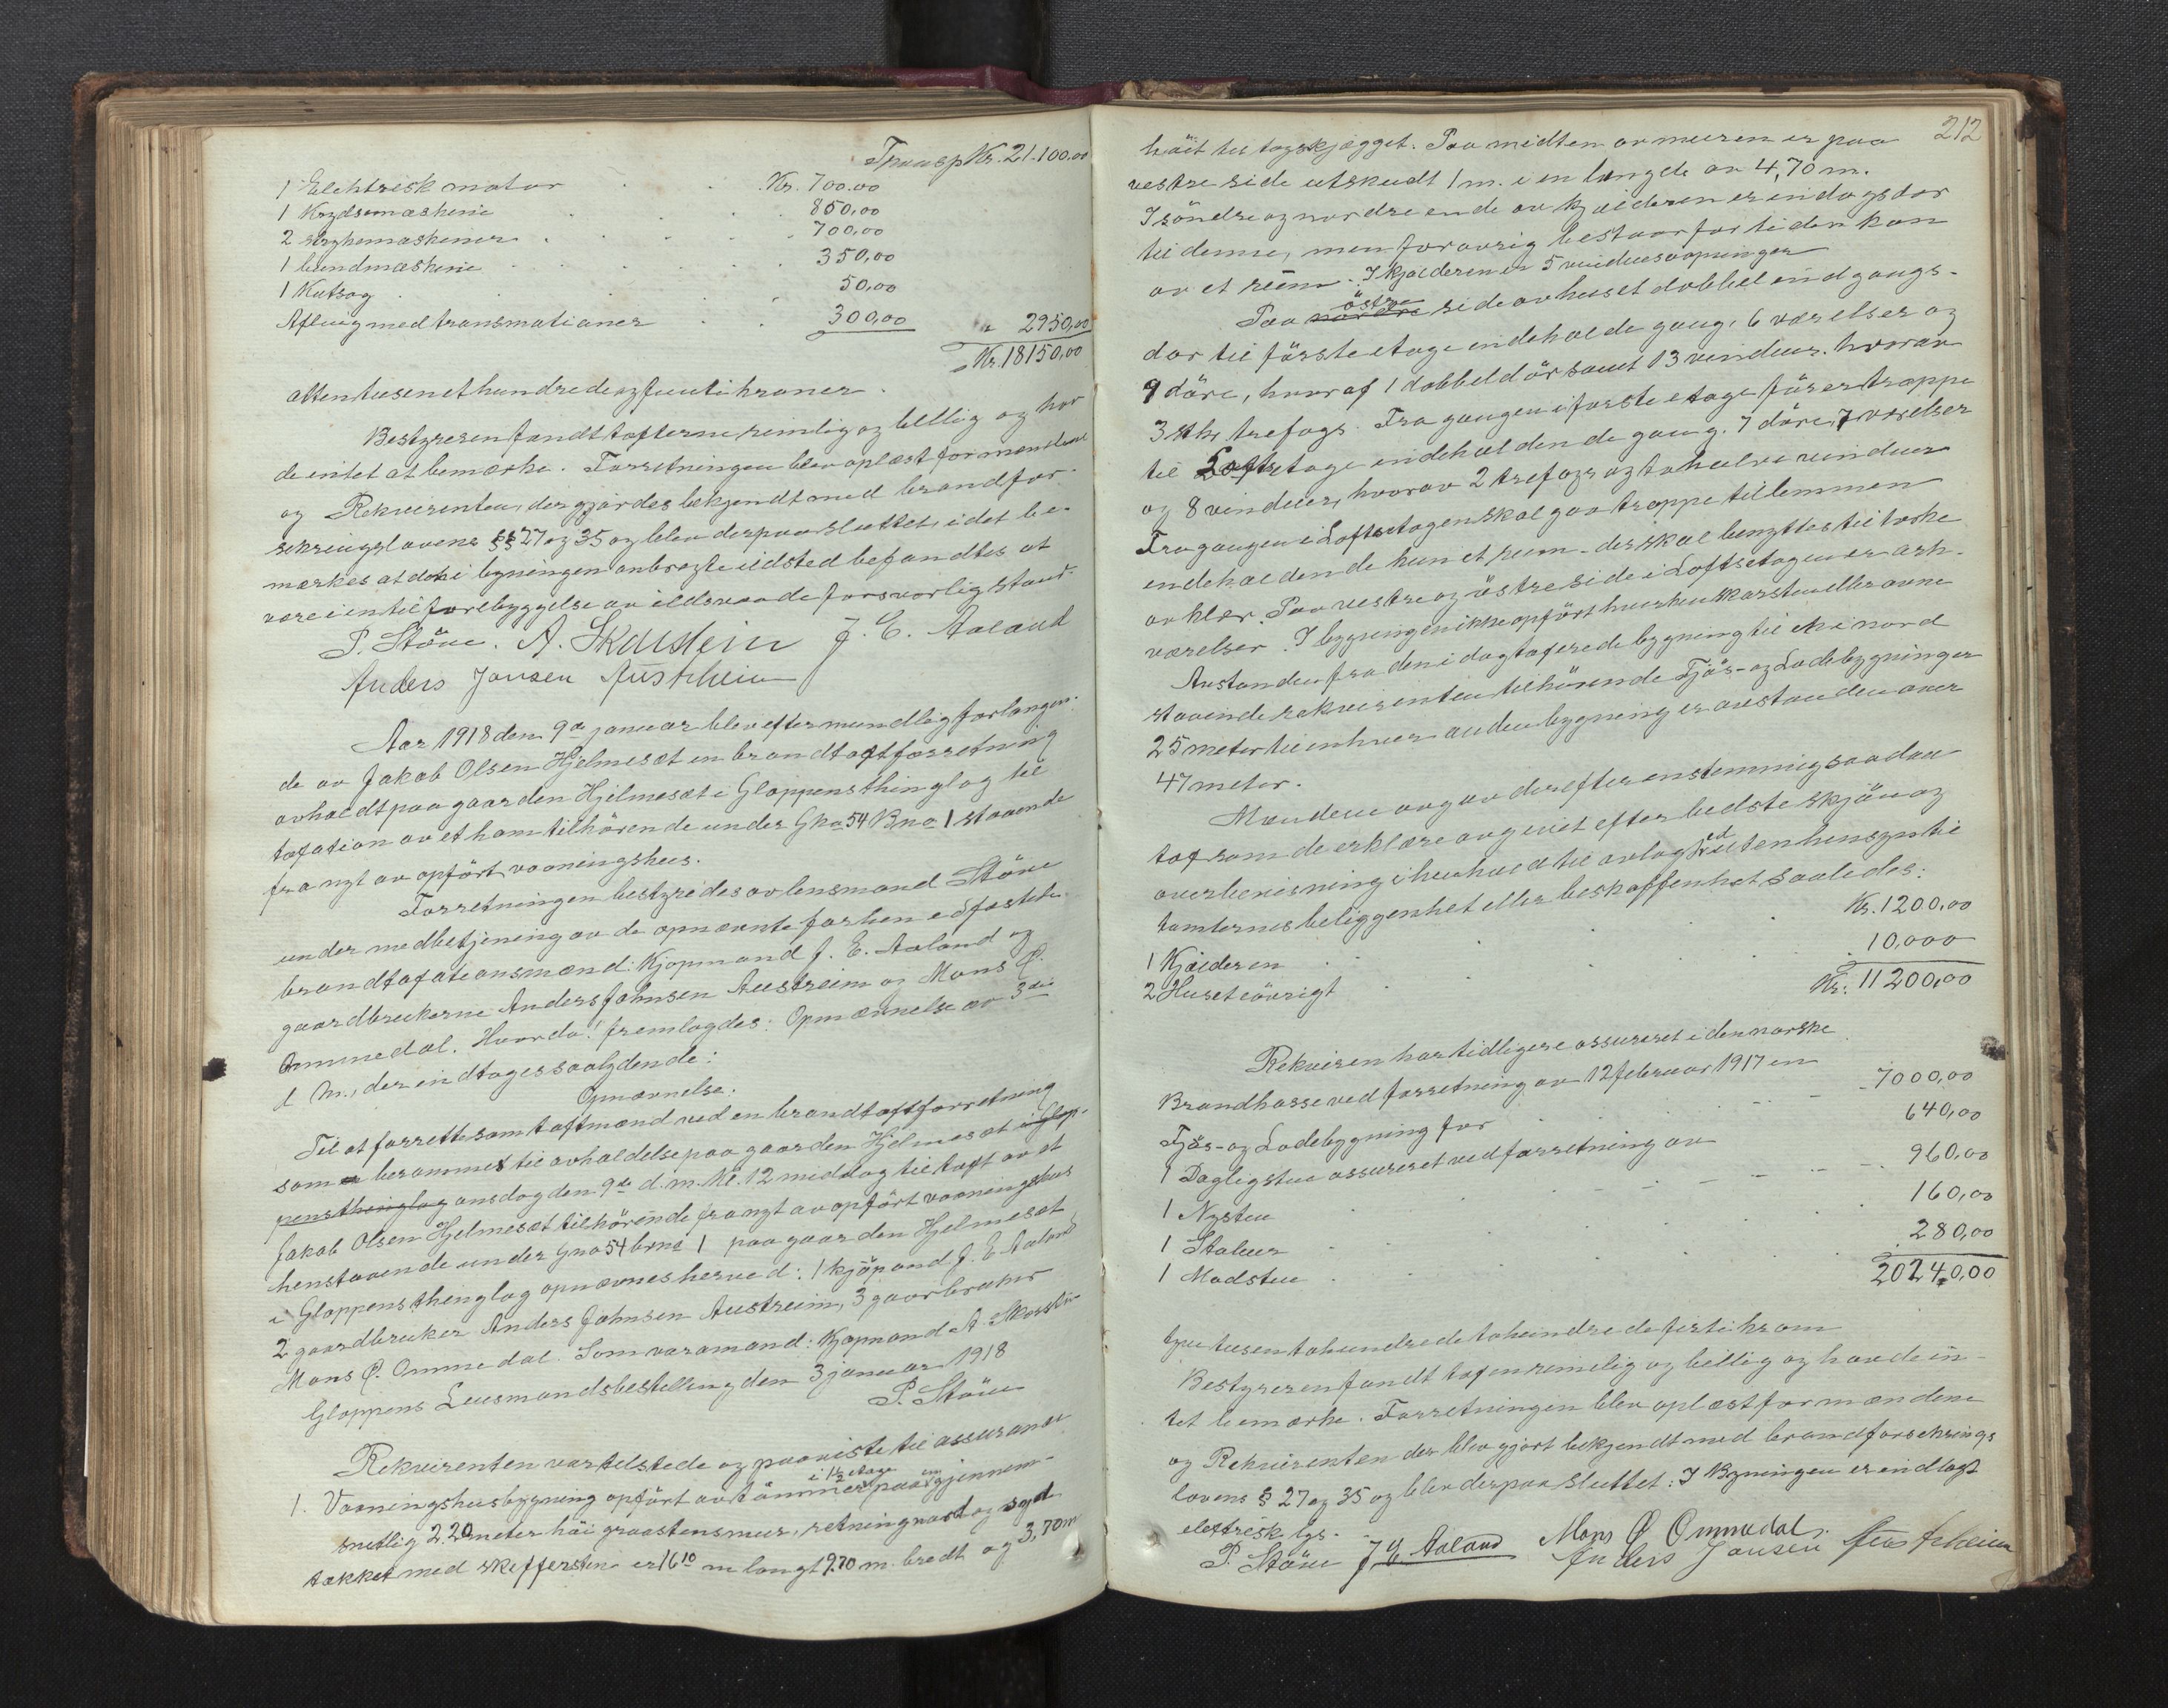 Transp Kr. 21.100.00
1 Elektrisk motor . . Kr. 700.00
1 Krydsemaskine . . . 850,00
2 strykemaskiner . . . 700,00
1 bundmaskine . . . 350,00
1 Kutsag . . . 50,00
Afling med transmationer . . 300,00 " 2950,00
Kr. 18150,00
atten tusen et hundrede og femti kroner.
Bestyreren fandt taksterne rimelig og billig og hav
de intet at bemærke. Forretningen blev oplæst for mændene
og Rekvirenten, der gjördes bekjendt med brandfor-
sikringslovens §§ 27 og 35 og blev derpaa sluttet, idet be-
mærkes at de i bygningen anbragte ildsted befandtes at
være i en til forebyggelse av ildsvaade forsvarlig stand.
P. Störe. A. Skarstein J. E. Aaland
Anders Jonsen Austrheim
Aar 1918 den 9de januar blev efter mundlig forlangen-
de av Jakob Olsen Hjelmeset en brandtaxtforretning
avholdt paa gaarden Hjelmeset i Gloppens thinglag til
taxation av et ham tilhörende under Gno 54 Bno 1 staaende
fra nyt av opfört vaaningshus.
Forretningen bestyrides av lensmand Störe
under medbetjening av de opnævnte forhen edfæstede
brandtaxationsmænd: Kjøpmand J. E. Aaland og
gaardbrukerne Anders Johnsen Austreim og Mons Ø.
Ommedal. Hvorda! fremlagdes: Opnævnelse av 3die
d M., der indtages saalydende:
Opnævnelse.
Til at forrette som taxtmænd ved en brandtaxtforretning
som er berammet til avholdelse paa gaarden Hjelmeset i Glop-
pens thinglag onsdag den 9de d. m. kl. 12 middag til taxt av et
Jakob Olsen Hjelmeset tilhörende fra nyt av opfört vaaningshus
henstaaende under Gno 54 brno 1 paa gaarden Hjelmeset
i Gloppens thinglag opnævnes herved: 1 kjöpand J. E Aaland
2 gaardbruker Anders Johnsen Austreim, 3 gaarbruker
Mons Ø. Ommedal. Som varamand: Kjøpmand A. Skarstein
Gloppens Lensmandsbestilling den 3 januar 1918
P. Störe
Rekvirenten var tilstede og paaviste til assurance
i 1½ etage en
1. Vaaningshusbygning opfört av tömmer paa gjennem-
snitlig 2.20 meter höi graastensmur, retning nord og syd
tækket med skiffersten er 16 10 m langt 9.70 m. bredt og 3,70 m
212
höit til tagskjægget. Paa midten av muren er paa
vestre side utskudt 1 m. i en længde av 4,70 m.
I söndre og nordre ende av kjælderen er indagsdör
til denne, men foravrig bestaar for tiden kun
av et rum. I kjælderen er 5 vinduesaapninger
östre
Paa nordre side av huset dobbel indgangs-
dør til förste etage indeholde gang, 6 værelser og
9 döre, hvoraf 1 dobbel dör samt 13 vinduer. hvorav
3 stk. trefags. Fra gangen i forste etage förer trappe
til Loftsetage indeholdende gang. 7 döre, 7 værelser
og 8 vinduer, hvorav 2 trefags og to halve vinduer
Fra gangen i Loftsetagen skal gaa trappe til lemmen
endeholdende kun et rum – der skal benyttes til törke
av klær. Paa vestre og östre side i Loftsetagen er ark-
værelser. I bygningen ikke opfört hverken skarsten eller ovne
Avstanden fra den i dag takserede bygning til en i nord
staaende rekvirenten tilhörende Fjös- og Ladebygninger
25 meter til enhver anden bygning er avstanden over
47 meter.
Mændene avgav derefter enstemmig saadan
tax som de erklære avgivet efter bedste skjön og
ed
overbevisning i henhold til avlagt uten hensyn til
tomternes beliggenhet eller beskaffenhet saaledes:
1 Kjælderen . . . Kr. 1200,00
2 Huset iövrigt . . . 10,000
Kr. 11200,00
Rekviren har tidligere assureret i den norske
Brandkasse ved forretning av 12 februar 1917 en
Fjös- og Ladebygning for - - - 7000,00
1 Dagligstue assureret ved forretning av 640,00
1 Nystue - - - 960,00
1 Stabur . . . 160,00
1 Madstue . . . 280,00
20240,00
tyve tusen tohundrede tohundrede firti kron
Bestyreren fandt taxen rimelig og billig og havde in-
tet bemærke. Forretningen blev oplæst for mændene
og Rekvirenten der blev gjort bekjendt med brandforsikrings
lovens § 27 og 35 og blev derpaa sluttet: I Bygningen er indlagt
elektrisk lys.
P. Störe J E Aaland Mons Ø Ommedal.
Anders Jonsen Austrheim